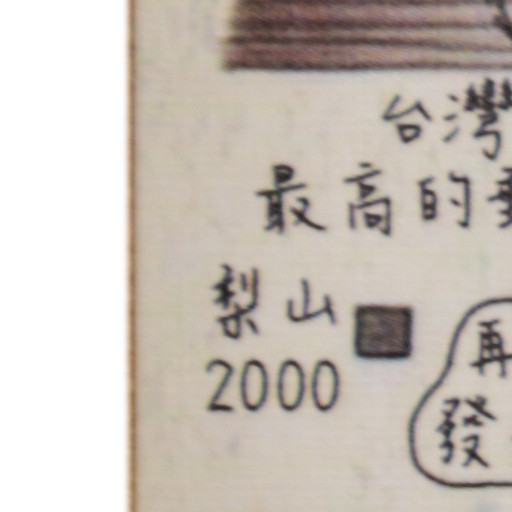 台灣
最高的
梨山
2000
再
發